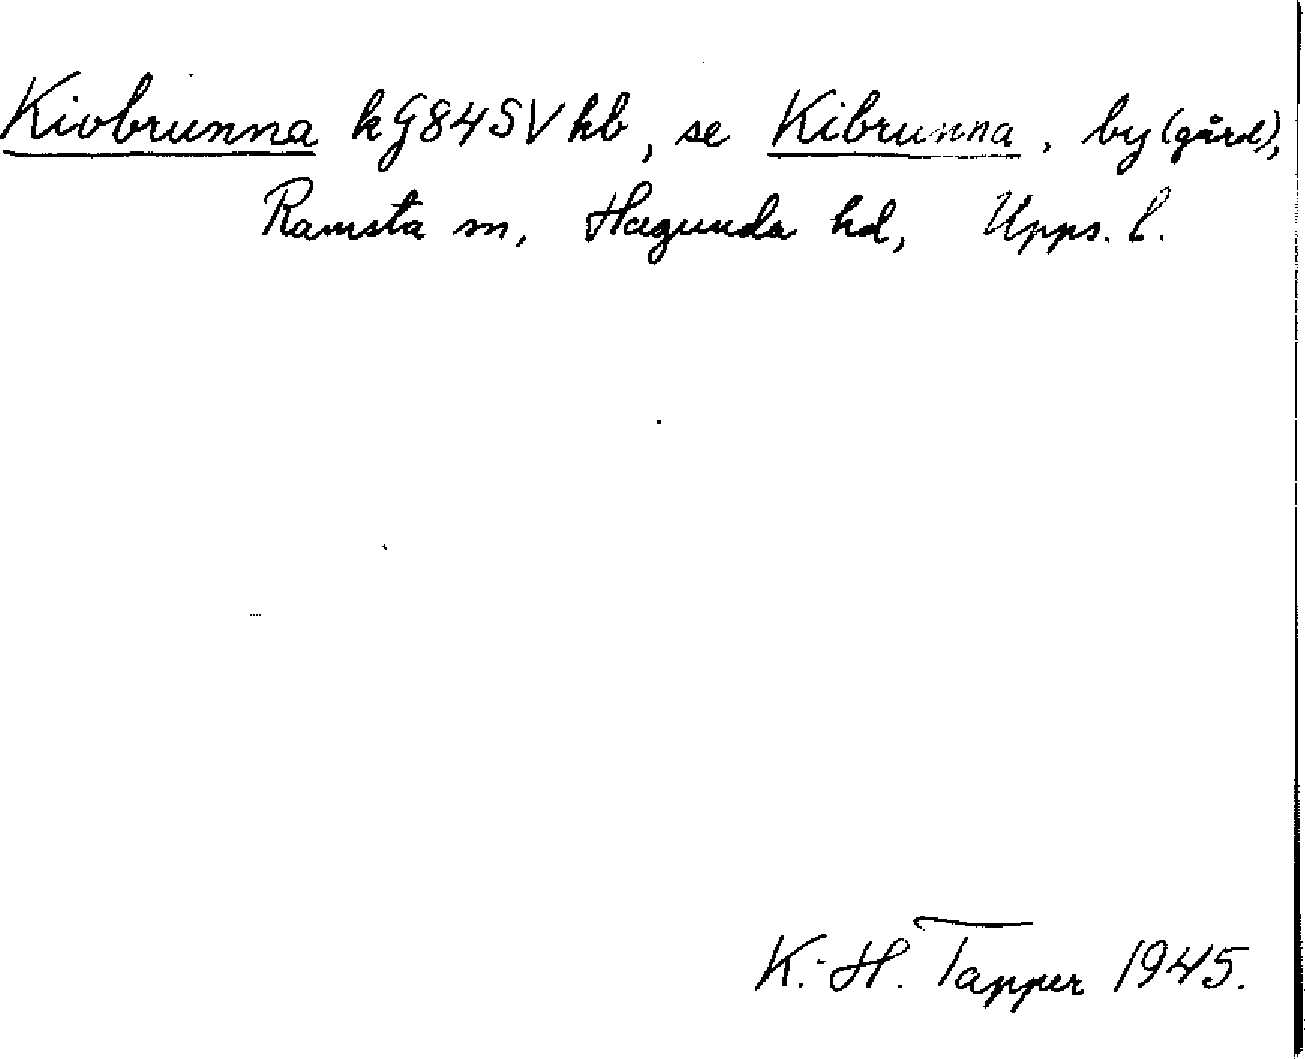 Kiobrunna kG84SV hb, se Kibrunna, by (gård),
Ramsta sn, Hagunda hd, Upps. l.
K.-H. Tapper 1945.